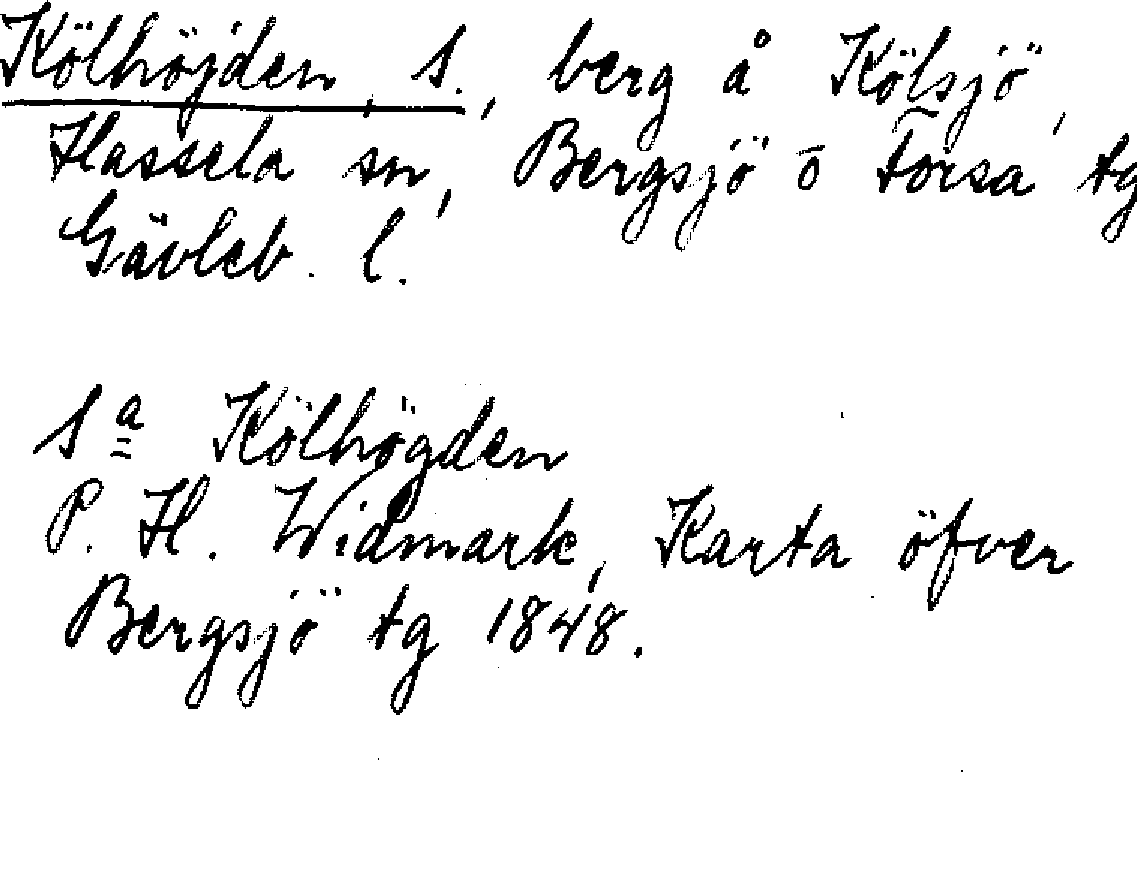 Kölhöjden, S., berg å Kölsjö,
Hassela sn, Bergsjö o Forsa tg
Gävleb. l.
Sa Kölhögden
P. H. Widmark, Karta öfver
Bergsjö tg 1848.